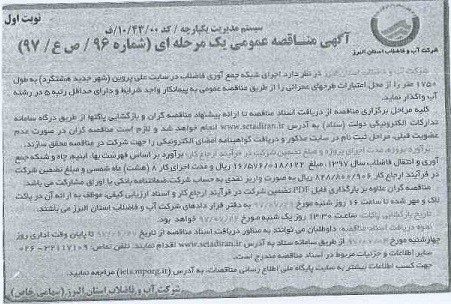 نوبت اول
سیستم مدیریت یکپارچه / کد ۱۰/۴۳/۰۰/ف
آگهی مناقصه عمومی یک مرحله ای (شماره ۹۶/ ص ع / ۹۷)
شرکت آب و فاضلاب استان البرز
شرکت آب و فاضلاب استان البرز در نظر دارد، اجرای شبکه جمع آوری فاضلاب در سایت علی پروین (شهر جدید هشتگرد) به طول
۱۷۵۰ متر را از محل اعتبارات طرحهای عمرانی را از طریق مناقصه عمومی به پیمانکار واجد شرایط و دارای حداقل رتبه ۵ در رشته
آب واگذار نماید.
کلیه مراحل برگزاری مناقصه از دریافت اسناد مناقصه تا ارائه پیشنهاد مناقصه گران و بازگشایی پاکتها از طریق درگاه سامانه
تدارکات الکترونیکی دولت (ستاد) به آدرس www.setadiran.ir انجام خواهد شد و لازم است مناقصه گران در صورت عدم
عضویت قبلی، مراحل ثبت نام در سایت مذکور و دریافت گواهینامه امضای الکترونیکی را جهت شرکت در مناقصه محقق سازند.
برآورد پروژه، مدت اجرای پروژه و مبلغ تضمین شرکت در فرآیند ارجاع کار: برآورد بر اساس فهرست بها، ابنیه، چاه و شبکه جمع
آوری و انتقال فاضلاب سال ۱۳۹۷، مبلغ ریال و مدت اجرای کار ۸ (هشت) ماه شمسی و مبلغ تضمین شرکت
در فرآیند ارجاع کار ریال به صورت واریز نقدی به حساب شرکت/ضمانتنامه بانکی یا اوراق مشارکت می باشد.
مناقصه گران علاوه بر بارگذاری فایل PDF تضمین شرکت در فرآیند ارجاع کار و اسناد ارزیابی کیفی، موظف به ارائه آن در پاکت
لاک و مهر شده تا ساعت ۱۶ روز شنبه مورخ به دفتر قرار دادهای شرکت آب و فاضلاب استان البرز می باشند.
تاریخ بازگشایی پاکات: ساعت ۱۳:۳۰ روز یک شنبه مورخ خواهد بود.
نحوه دریافت اسناد مناقصه: داوطلبان می توانند به منظور دریافت اسناد مناقصه از تاریخ تا پایان وقت اداری روز
چهارشنبه مورخ از طریق سامانه ستاد به آدرس www.setadiran.ir اقدام نمایند. تلفن تماس: ۳۲۱۱۷۱۰۹-۰۲۶
سایر اطلاعات و جزئیات مربوط در اسناد مناقصه مندرج است.
جهت کسب اطلاعات بیشتر به سایت پایگاه ملی اطلاع رسانی مناقصات، به آدرس (iets.mporg.ir) مراجعه نمایید.
شرکت آب و فاضلاب استان البرز (سهامی خاص)